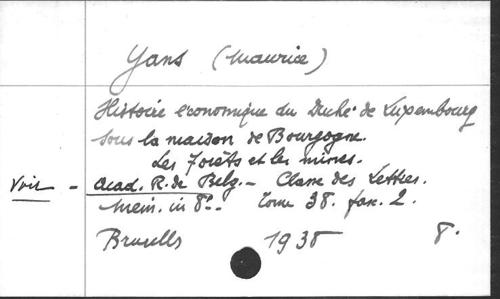 Yans (Maurice)
Histoire économique du Duché de Luxembourg
sous la maison de Bourgogne.
Les forêts et les mines.
Voir - Acad. R. de Belg. - Classe des Lettres.
Mém. in 8°. - Tome 38. fasc. 2.
Bruxelles 1938 8.